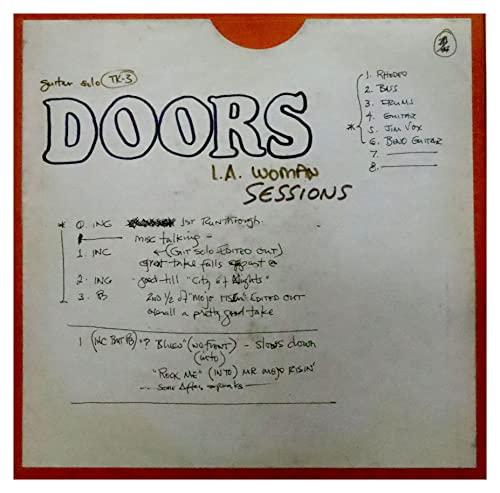 guitar solo TK-3
DOORS
L.A. WOMAN
SESSIONS
1. RHODES
2. BASS
3. DRUMS
4. GUITAR
* 5. JIM VOX
6. BEND GUITAR
7.
8.
* 0. INC 1st RunThrough.
misc talking -
1. INC (GIT SOLO EDITED OUT)
great take falls apart @
2. INC good-till "City of Nights"
3. PB 2ND 1/2 of "mojo RISIN" EDITED OUT
overall a pretty good take
1 (INC BUT PB) "? BLUES" (NO FRONT) - Slows down
(into)
"ROCK ME" (INTO) MR MOJO RISIN'
some After